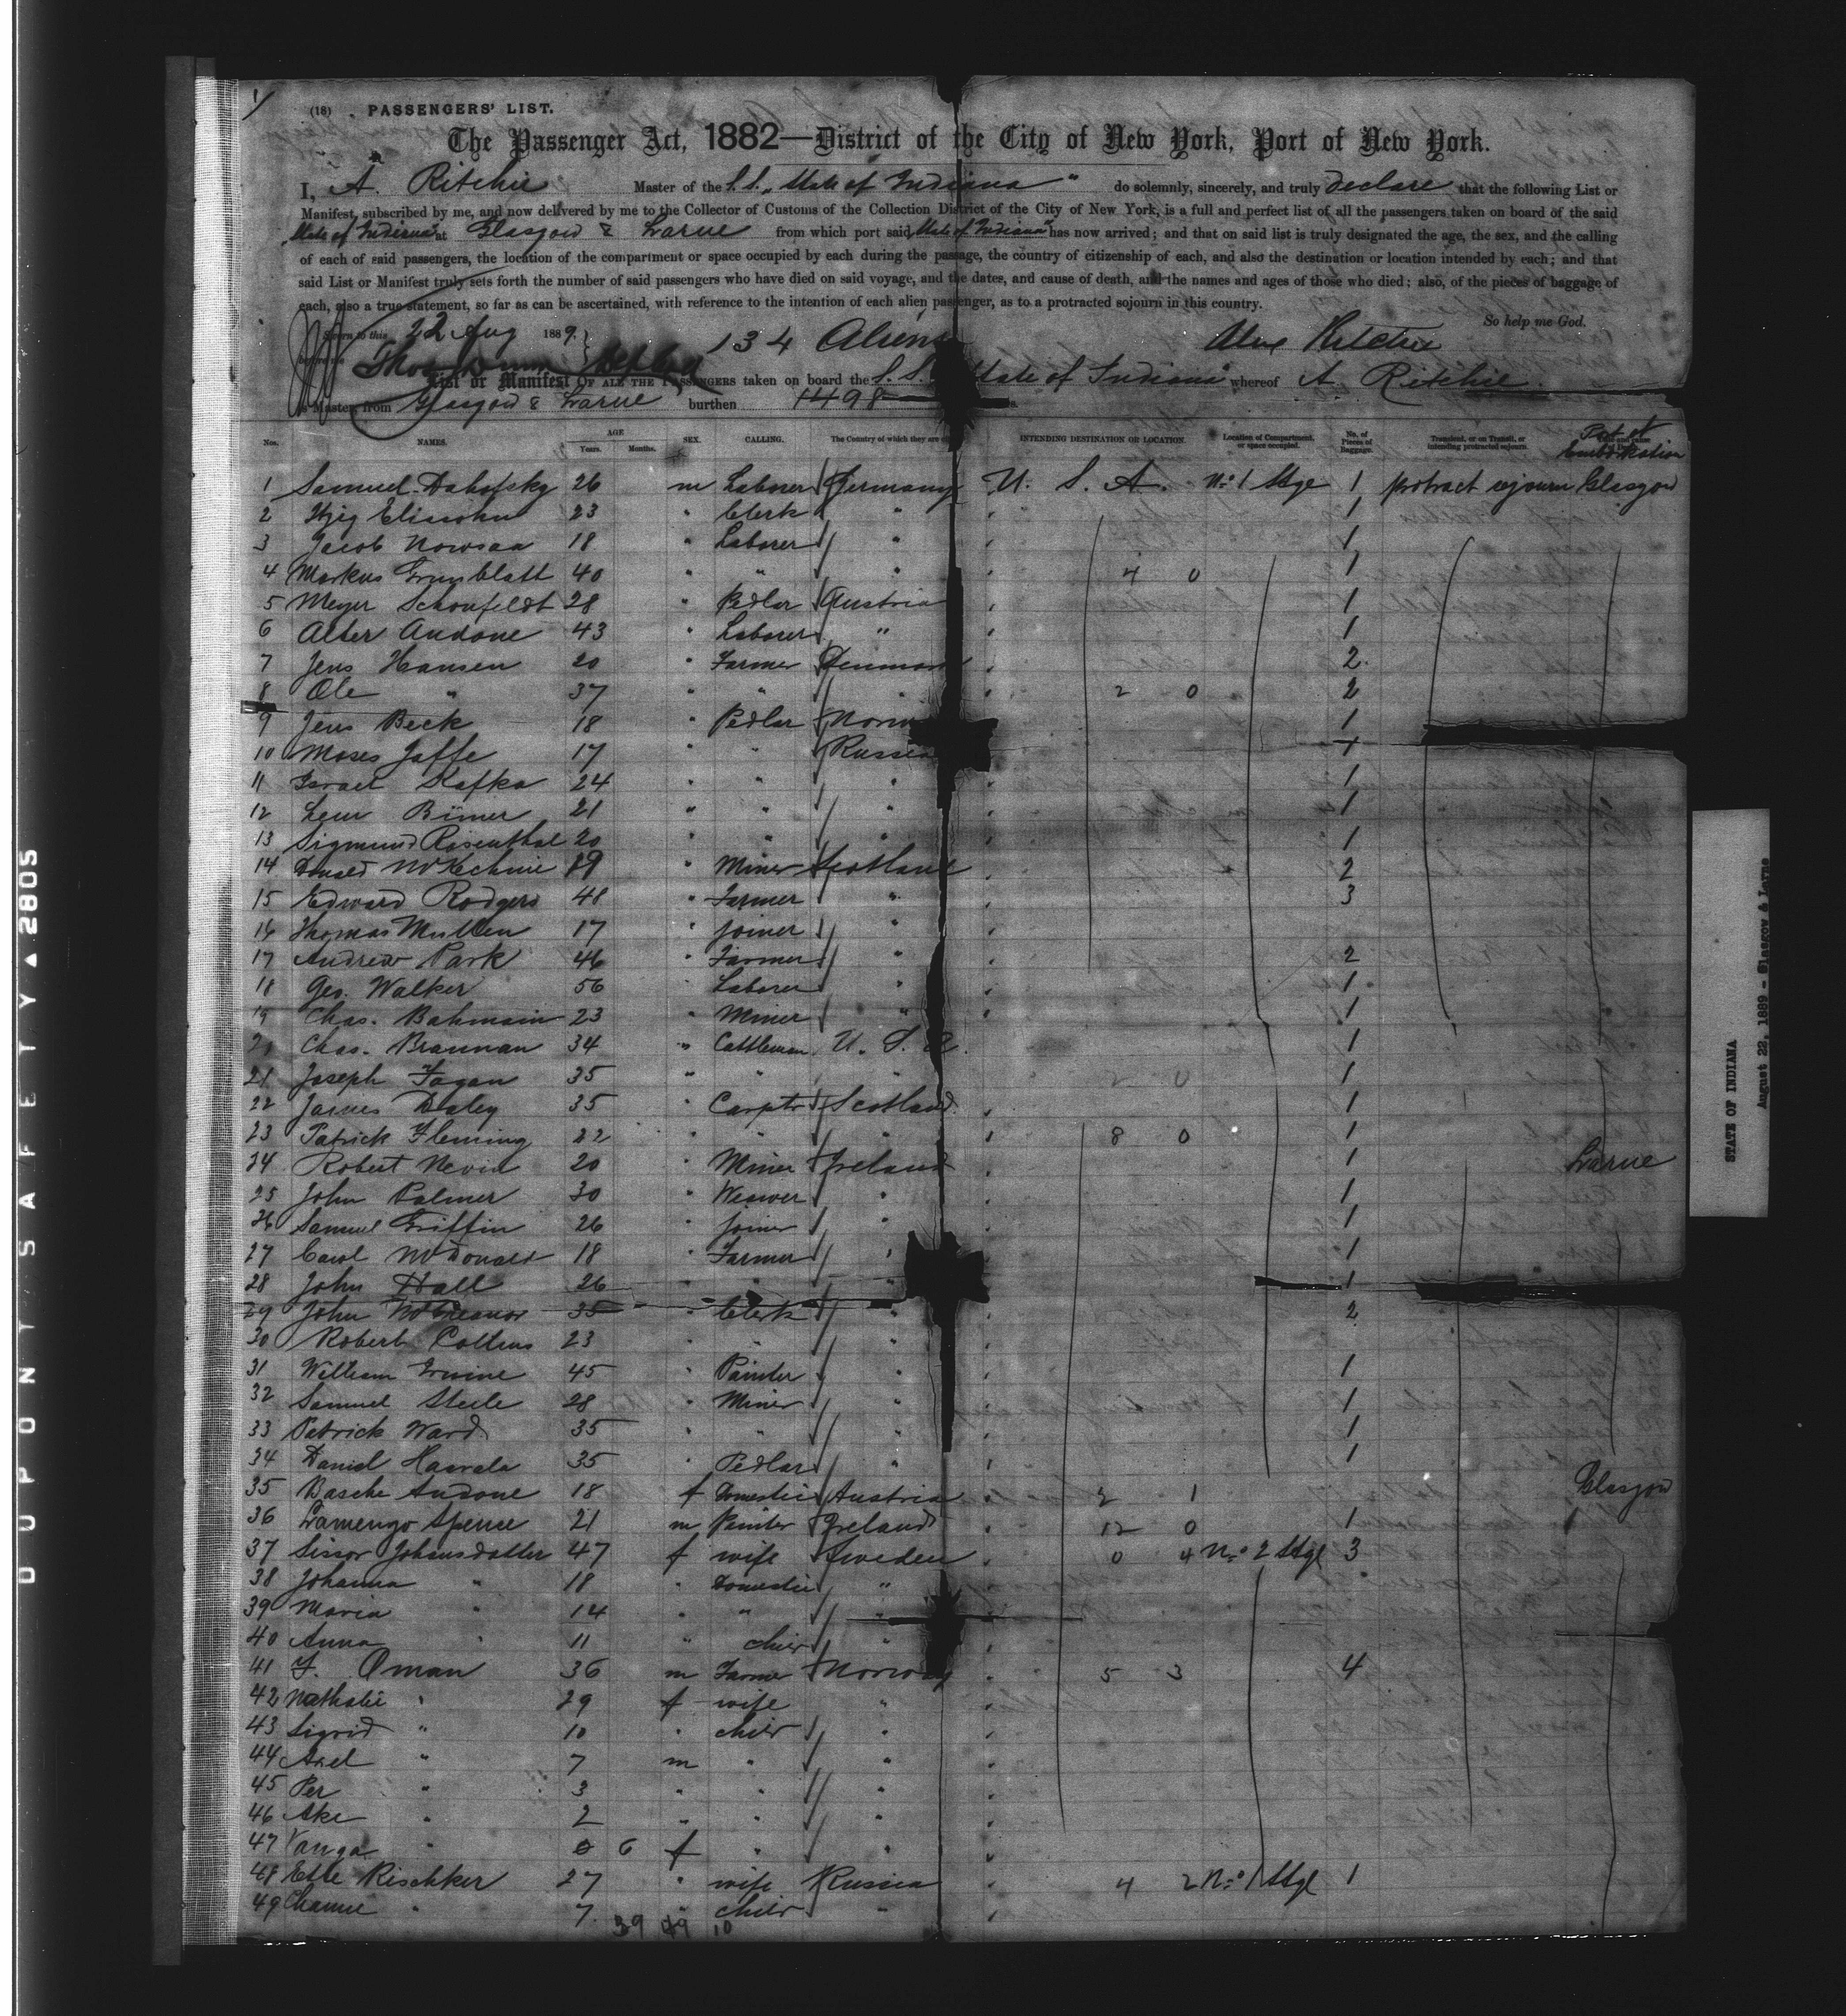 1/
(18) PASSENGERS' LIST.
The Passenger Act, 1882—District of the City of New York, Port of New York.
I, A. Ritchie Master of the S.S. "State of Indiana" do solemnly, sincerely, and truly declare that the following List or
Manifest, subscribed by me, and now delivered by me to the Collector of Customs of the Collection District of the City of New York, is a full and perfect list of all the passengers taken on board of the said
State of Indiana at Glasgow & Larne from which port said State of Indiana has now arrived; and that on said list is truly designated the age, the sex, and the calling
of each of said passengers, the location of the compartment or space occupied by each during the passage, the country of citizenship of each, and also the destination or location intended by each; and that
said List or Manifest truly sets forth the number of said passengers who have died on said voyage, and the dates, and cause of death, and the names and ages of those who died; also, of the pieces of baggage of
each, also a true statement, so far as can be ascertained, with reference to the intention of each alien passenger, as to a protracted sojourn in this country.
So help me God.
Sworn to this 22 Aug 1889. 134 Aliens Alex Ritchie
before me
List or Manifest OF ALL THE PASSENGERS taken on board the S.S. "State of Indiana" whereof A. Ritchie
is Master, from Glasgow & Larne burthen 1498
Nos. NAMES. AGE Years. Months. SEX. CALLING. The Country of which they are INTENDING DESTINATION OR LOCATION. Location of Compartment, or space occupied. No. of Pieces of Baggage. Transient, or on Transit, or intending protracted sojourn. Port of Embarkation
1 Samuel Dahofsky 26 m Laborer Germany U. S. A. No 1 Stge 1 protract sojourn Glasgow
2 Itzig Eliasohn 23 " Clerk " " 1
3 Jacob Nowsaa 18 " Laborer " " 1
4 Markus Grunblatt 40 " " " 4 0 1
5 Meyer Schonfeldt 28 " Pedlar Austria " 1
6 Alter Andone 43 " Laborer " " 1
7 Jens Hansen 20 " Farmer Denmark " 2
8 Ole " 37 " " " " 2 0 2
9 Jens Beck 18 " Pedlar Norw 1
10 Moses Jaffe 17 " " Russia 1
11 Israel Kafka 24 " " " " 1
12 Bimer 21 " " " " 1
13 Sigmund Rosenthal 20 " " " " 1
14 Donald McKechnie 19 " Miner Scotland " 2
15 Edward Rodgers 48 " Farmer " " 3
16 Thomas Mullen 17 " Joiner " "
17 Andrew Park 46 " Farmer " " 2
18 Geo. Walker 56 " Laborer " " 1
19 Chas. Bahmain 23 " Miner " " 1
20 Chas. Brannan 34 " Cattleman U. S. A. 1
21 Joseph Fagan 35 " " " 2 0 1
22 James Daley 35 " Carptr Scotland " 1
23 Patrick Fleming 22 " " " " 8 0 1
24 Robert Nevin 20 " Miner Ireland " 1 Larne
25 John Palmer 30 " Weaver " " 1
26 Samuel Griffin 26 " Joiner " " 1
27 Carol McDonald 18 " Farmer " " 1
28 John Hall 26 " " " " 1
29 John 35 " Clerk " " 2
30 Robert Collins 23 " " " "
31 William Irwine 45 " Painter " " 1
32 Samuel Steele 28 " Miner " " 1
33 Patrick Ward 35 " " " " 1
34 Daniel 35 " Pedlar " " 1
35 Basche Andone 18 f Domestic Austria " 2 1 Glasgow
36 Spence 21 m Painter Ireland " 12 0 1
37 Sissor Johansdatter 47 f wife Sweden " 0 4 No 2 Stge 3
38 Johanna " 18 " Domestic " "
39 Maria " 14 " " " "
40 Anna " 11 " child " "
41 F. Oman 36 m Farmer Norway " 5 3 4
42 Nathalie " 29 f wife " "
43 Sigrid " 10 " child " "
44 Axel " 7 m " " "
45 Per " 3 " " " "
46 Ake " 2 " " " "
47 Vanga " 0 6 f " " "
48 Ette Rischker 27 " wife Russia " 4 2 No 1 Stge 1
49 Chanie " 7 " child " "
39 49 10
STATE OF INDIANA
August 22, 1889 - Glasgow & Larne
DUPONT SAFETY ▲ 2805